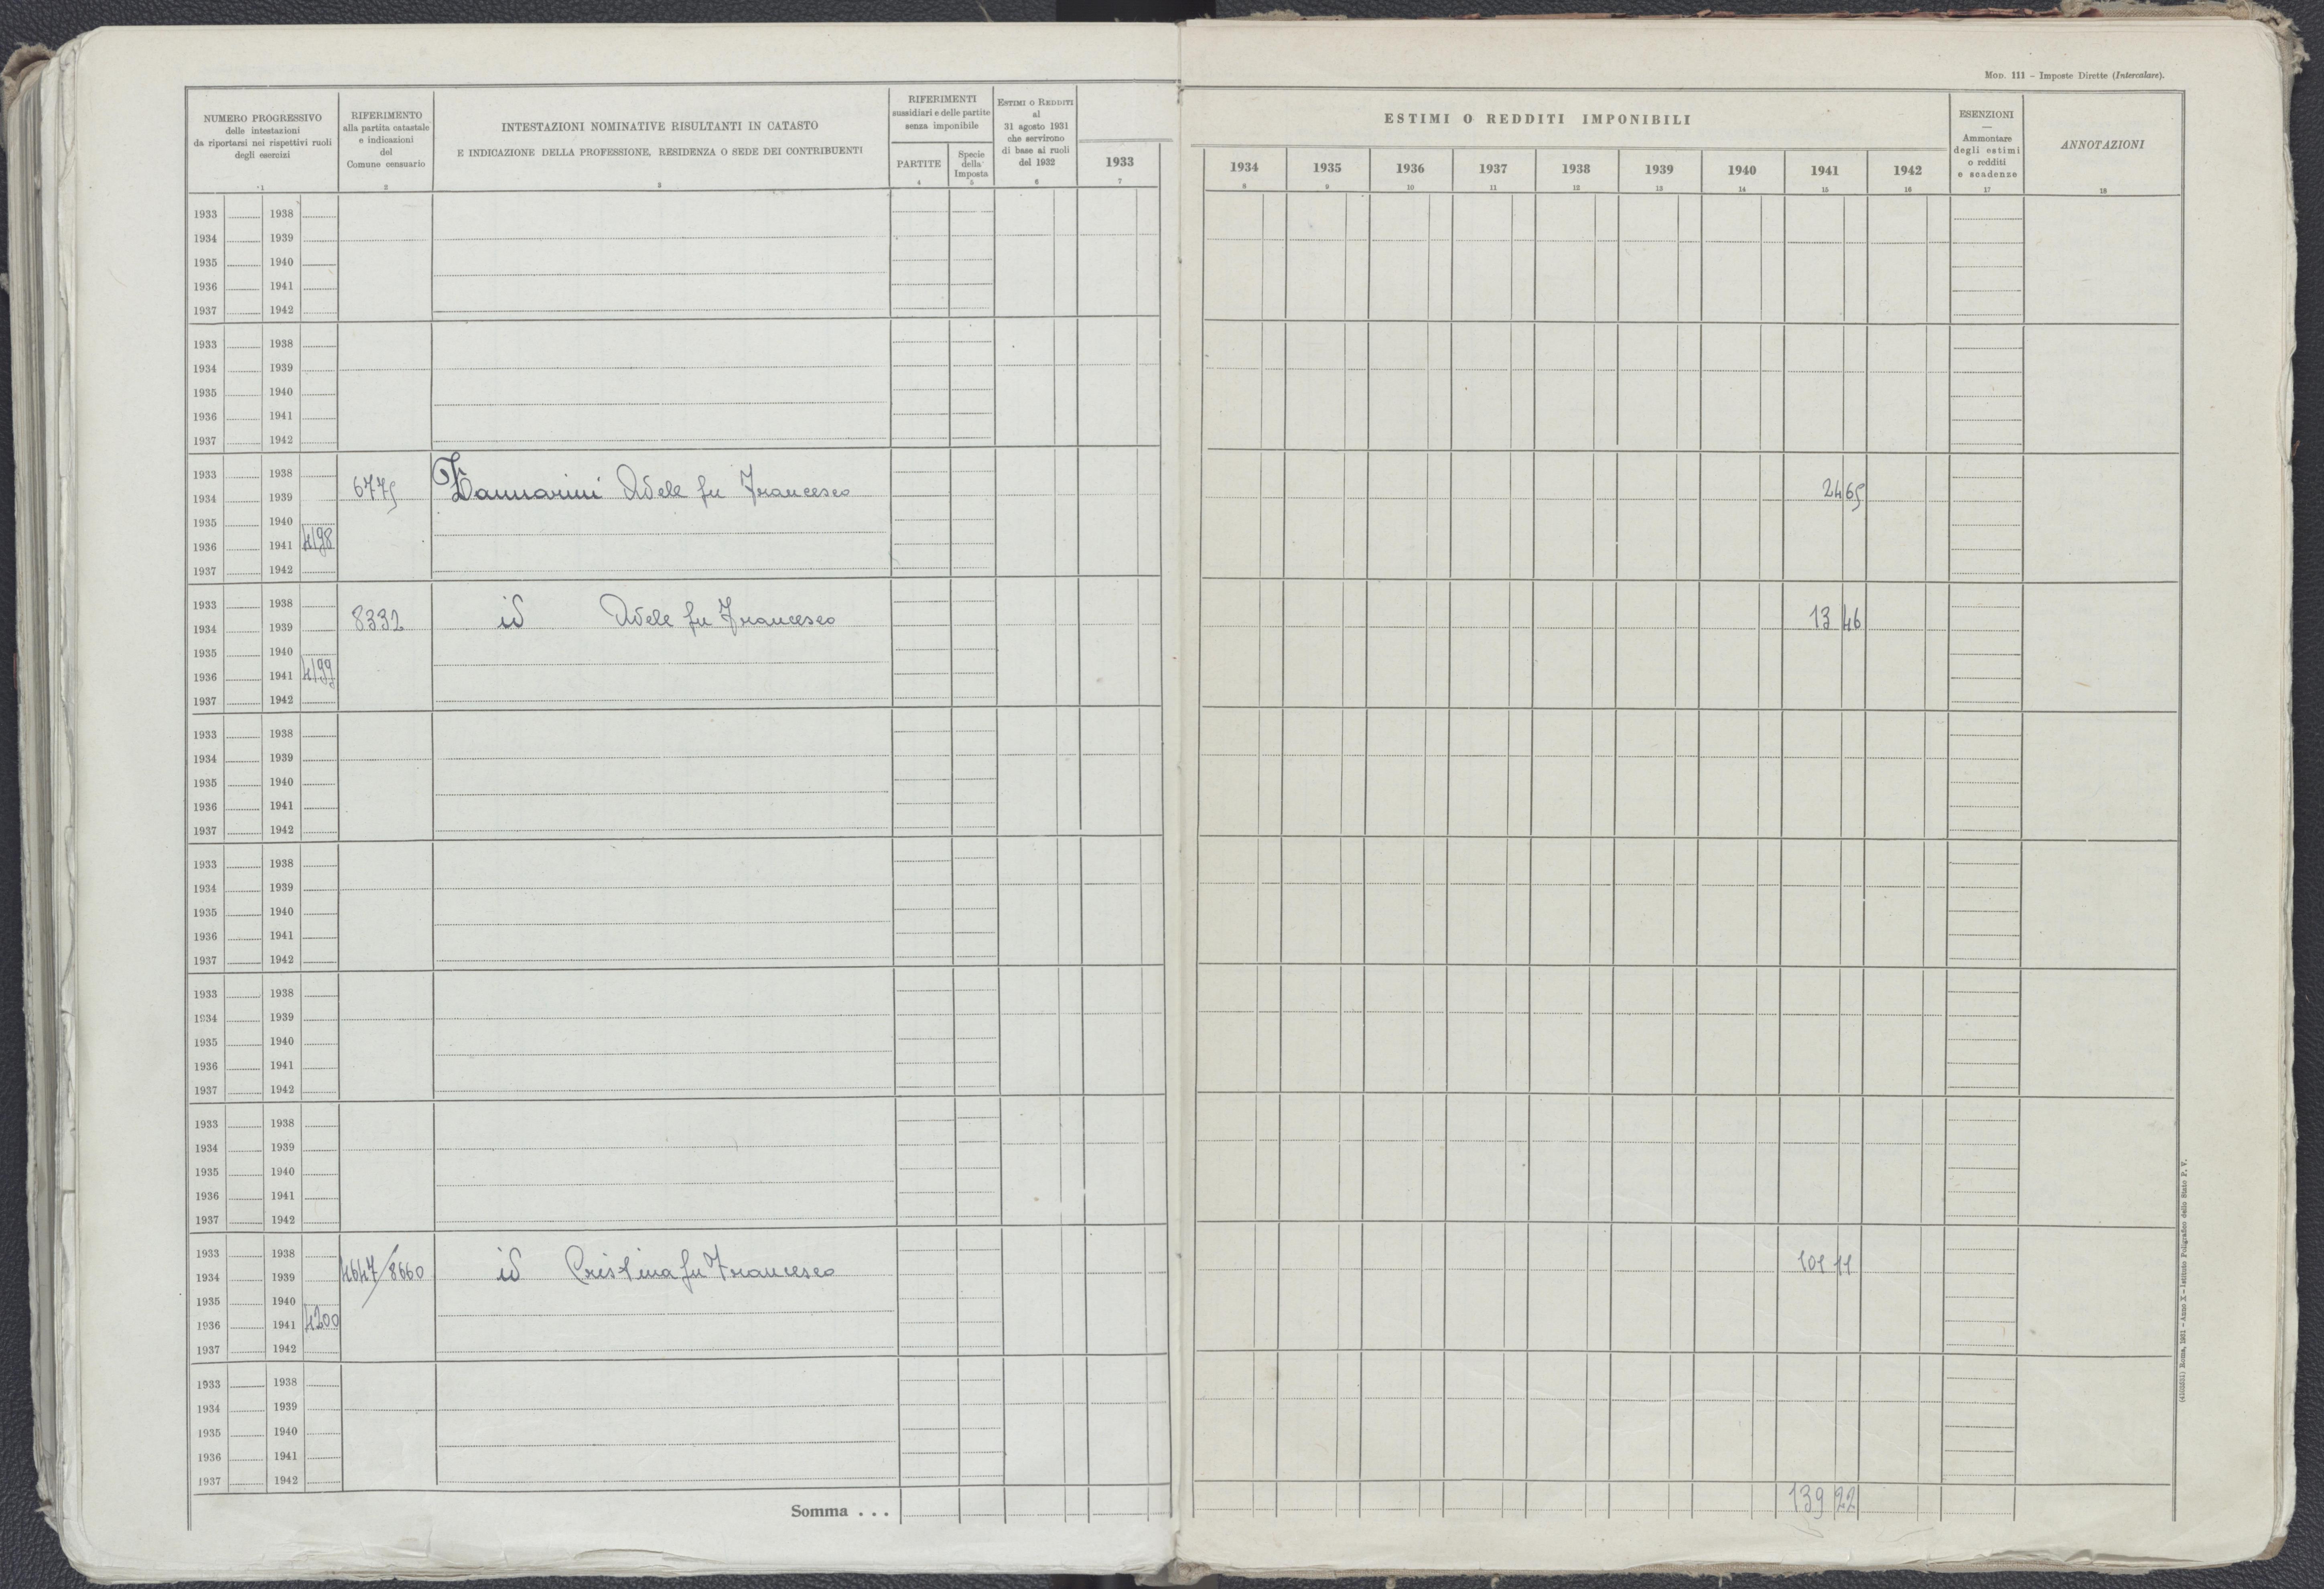 MOD. 111 – Imposte Dirette (Intercalare).
NUMERO PROGRESSIVO
delle intestazioni
da riportarsi nei rispettivi ruoli
degli esercizi
1
RIFERIMENTO
alla partita catastale
e indicazioni
del
Comune censuario
2
INTESTAZIONI NOMINATIVE RISULTANTI IN CATASTO
E INDICAZIONE DELLA PROFESSIONE, RESIDENZA O SEDE DEI CONTRIBUENTI
3
RIFERIMENTI
sussidiari e delle partite
senza imponibile
PARTITE
4
Specie
della
Imposta
5
ESTIMI O REDDITI
al
31 agosto 1931
che servirono
di base ai ruoli
del 1932
6
1933
7
ESTIMI O REDDITI IMPONIBILI
1934 1935 1936 1937 1938 1939 1940 1941 1942
8 9 10 11 12 13 14 15 16
ESENZIONI
—
Ammontare
degli estimi
o redditi
e scadenze
17
ANNOTAZIONI
18
1933 1938
1934 1939
1935 1940
1936 1941
1937 1942
1933 1938
1934 1939
1935 1940
1936 1941
1937 1942
1933 1938
1934 1939 6775 Zannarini Adele fu Francesco 24 65
1935 1940
1936 1941 4198
1937 1942
1933 1938
1934 1939 8332 id Adele fu Francesco 13 46
1935 1940
1936 1941 4199
1937 1942
1933 1938
1934 1939
1935 1940
1936 1941
1937 1942
1933 1938
1934 1939
1935 1940
1936 1941
1937 1942
1933 1938
1934 1939
1935 1940
1936 1941
1937 1942
1933 1938
1934 1939
1935 1940
1936 1941
1937 1942
1933 1938
1934 1939 4647/8660 id Cristina fu Francesco 101 11
1935 1940
1936 1941 4200
1937 1942
1933 1938
1934 1939
1935 1940
1936 1941
1937 1942
Somma . . . 139 22
Roma, 1931 – Anno X – Istituto Poligrafico dello Stato P. V.